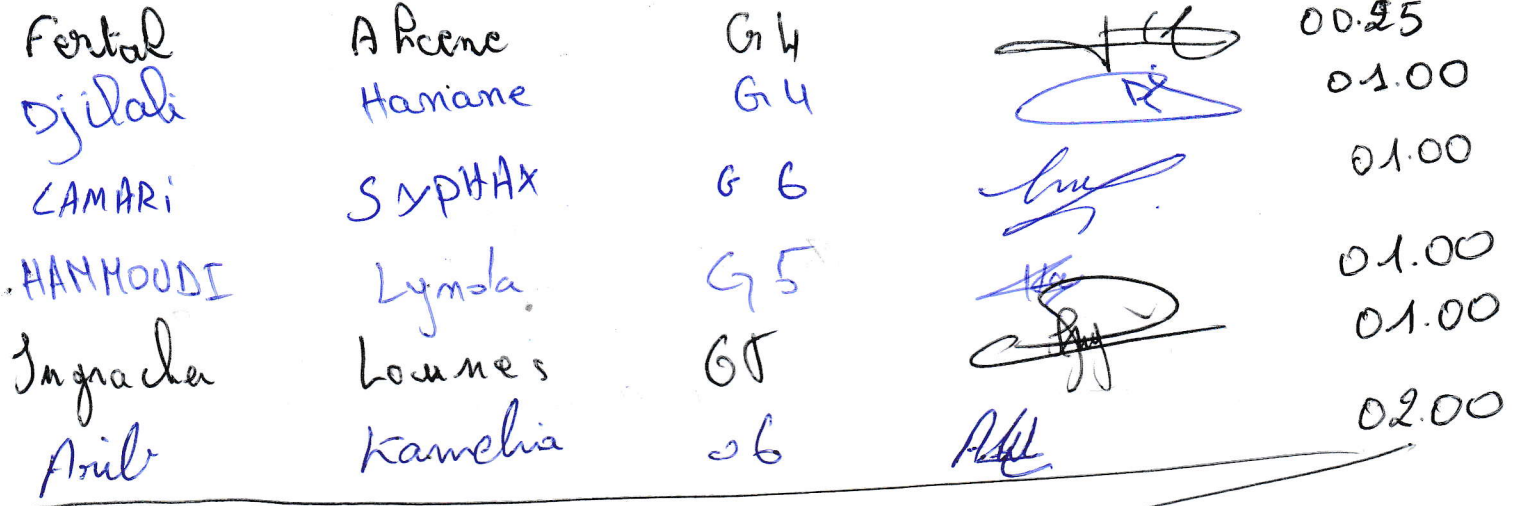 Fertal Ahcene G4 00.25
Djilali Haniane G4 01.00
CAMARi SYPHAX G 6 01.00
HAMMOUDI Lynda G5 01.00
Ingrachen Lounes G5 01.00
Arib Kamelia 06 02.00